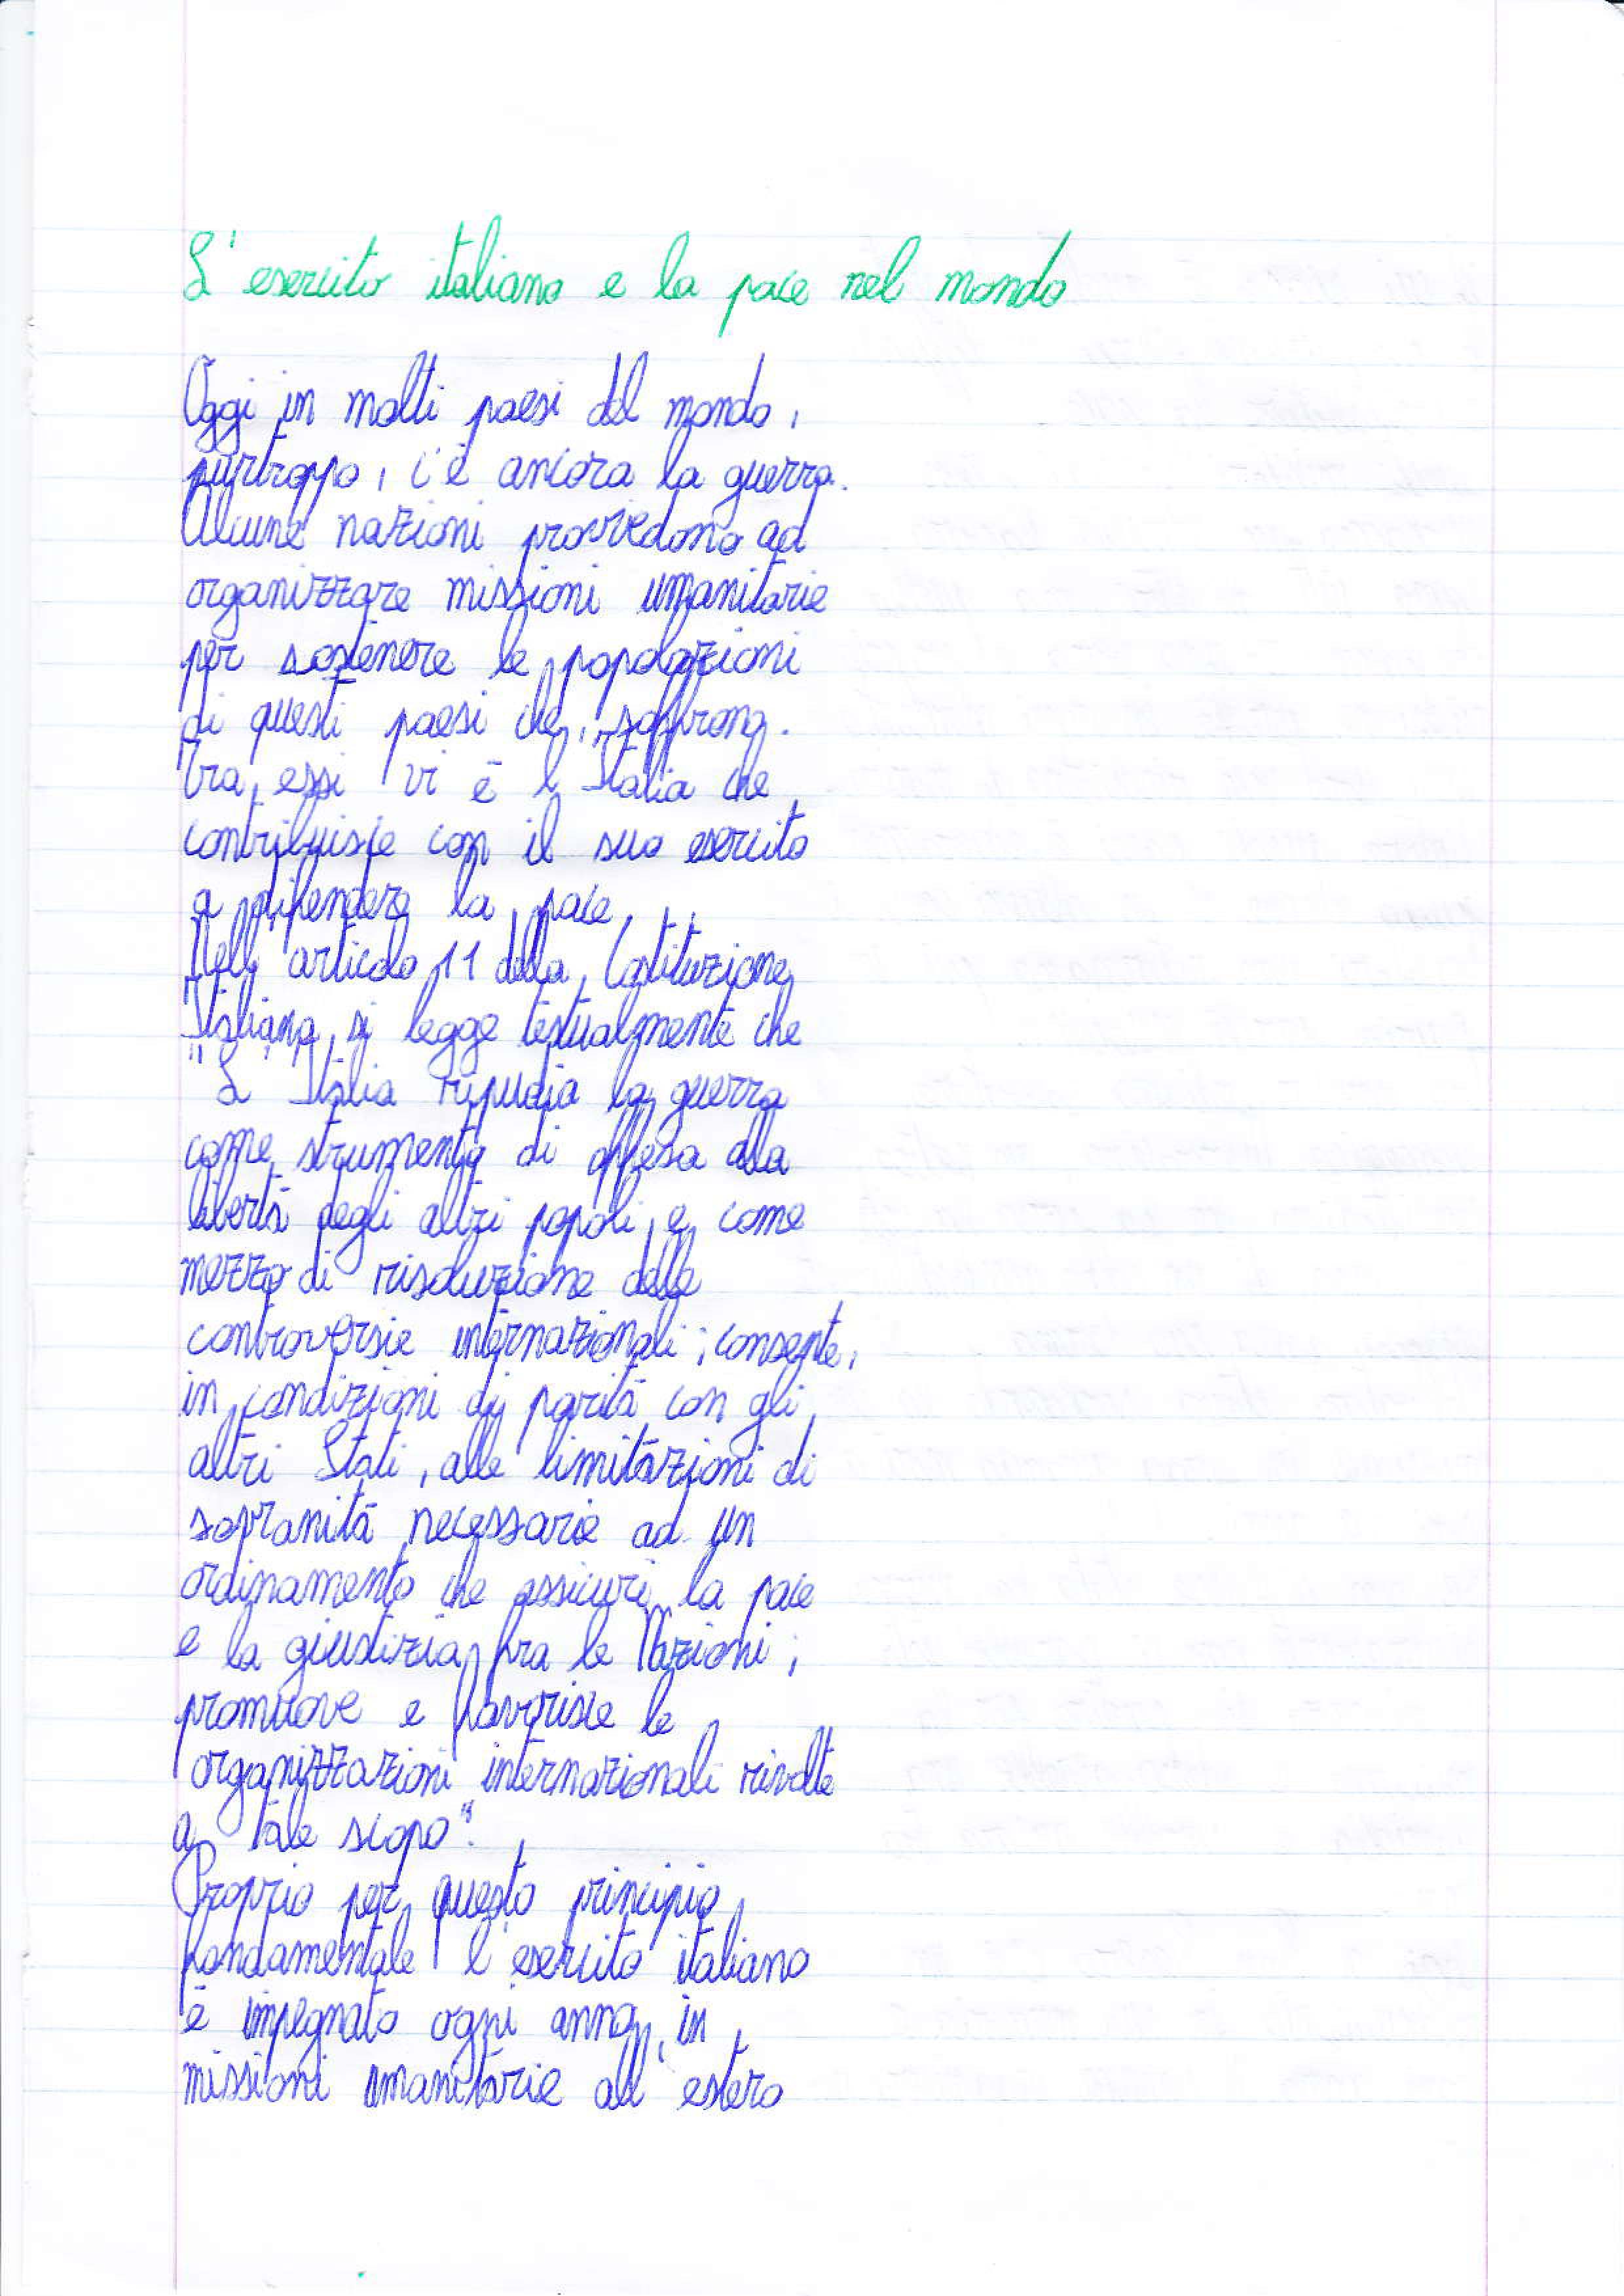 L'esercito italiano e la pace nel mondo
Oggi in molti paesi del mondo,
purtroppo, c'è ancora la guerra.
Alcune nazioni provvedono ad
organizzare missioni umanitarie
per sostenere le popolazioni
di questi paesi che soffrono.
Tra essi vi è l'Italia che
contribuisce con il suo esercito
a difendere la pace.
Nell'articolo 11 della Costituzione
Italiana si legge testualmente che
"L'Italia ripudia la guerra
come strumento di offesa alla
libertà degli altri popoli e come
mezzo di risoluzione delle
controversie internazionali; consente,
in condizioni di parità con gli
altri Stati, alle limitazioni di
sovranità necessarie ad un
ordinamento che assicuri la pace
e la giustizia fra le Nazioni;
promuove e favorisce le
organizzazioni internazionali rivolte
a tale scopo".
Proprio per questo principio
fondamentale l'esercito italiano
è impegnato ogni anno, in
missioni umanitarie all'estero